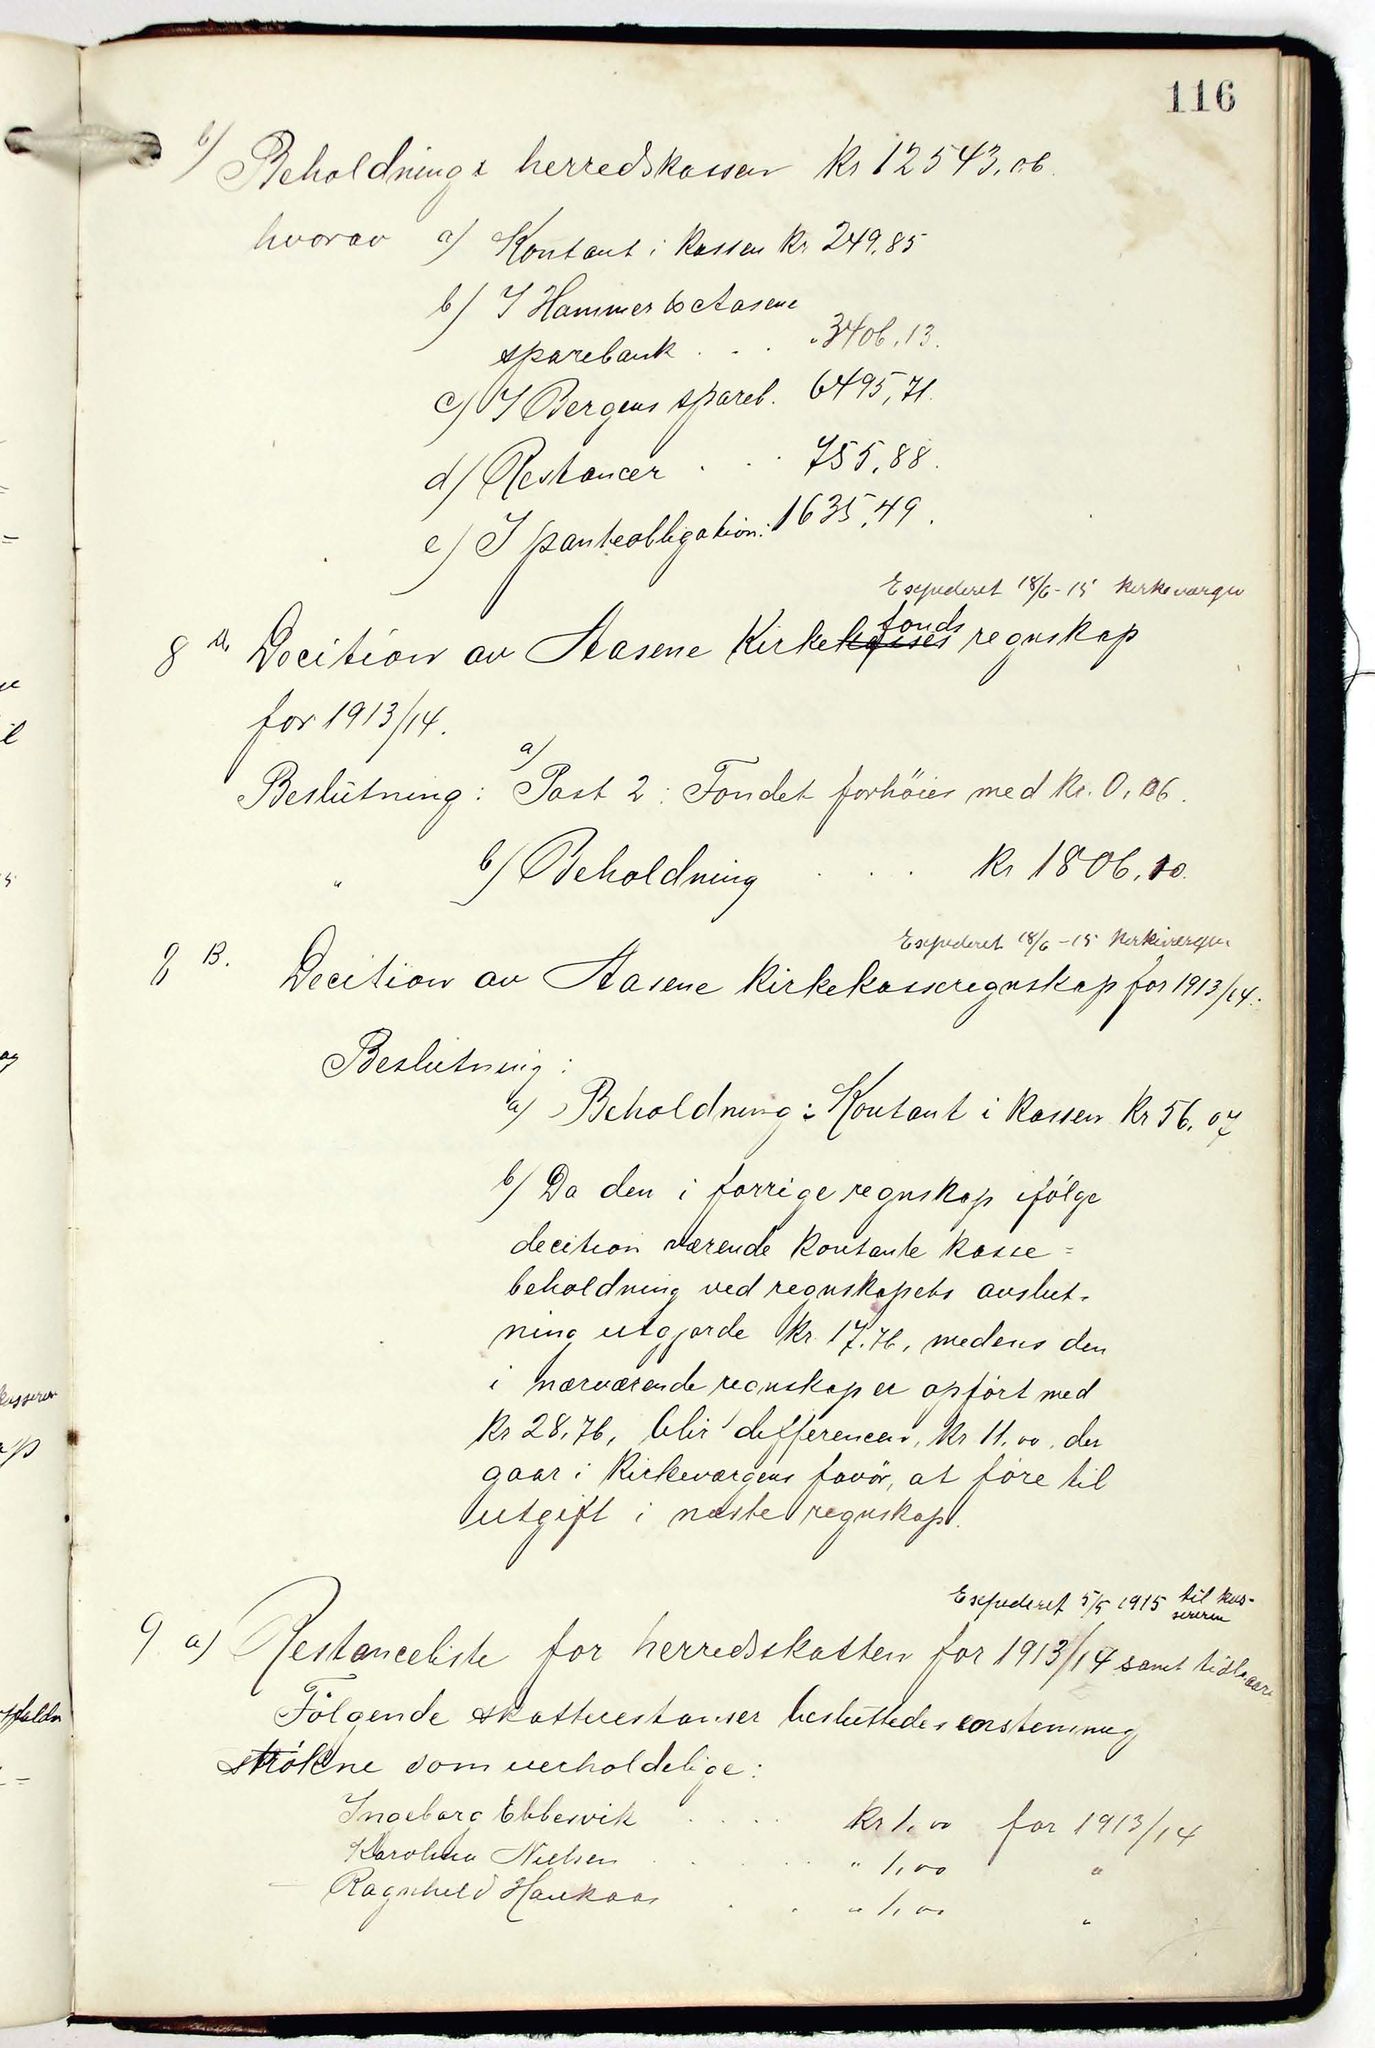 116
b) Beholdning i herredskassen Kr 12543,06.
hvorav a) Kontant i kassen Kr 249,85
b) I Hammer & Aasene
sparebank . . . " 3406,13.
c) I Bergens spareb. 6495,71.
d) Restancer . . . 755,88.
e) I panteobligation: 1635,49.
Expederet 18/6-15 Kirkeværgen
fonds
8 A. Decition av Aasene Kirkekasses regnskap
for 1913/14.
Beslutning: a) Post 2: Fondet forhöies med Kr. 0,06.
" b) Beholdning . . . Kr 1806,10.
Expederet 18/6-15 Kirkeværgen
8 B. Decition av Aasene Kirkekasseregnskap for 1913/14.
Beslutning:
a) Beholdning: Kontant i kassen Kr 56,07
b) Da den i forrige regnskap ifölge
decition værende kontante kasse=
beholdning ved regnskapets avslut-
ning utgjorde Kr. 17,76, medens den
i nærværende regnskap er opfört med
Kr 28,76, blir differencen, Kr 11,00, der
gaar i Kirkeværgens favör, at före til
utgift i næste regnskap.
Expederet 5/5 1915 til kas-
sereren
9 a) Restanceliste for herredsskatten for 1913/14 samt tidl. aar
Fölgende skatterestanser besluttedes enstemmig
strökne som uerholdelige:
Ingeborg Ebbesvik . . . . Kr 1,00 for 1913/14
Karolina Nielsen . . . . " 1,00 "
Ragnhild Haukaas . . . " 1,00 "